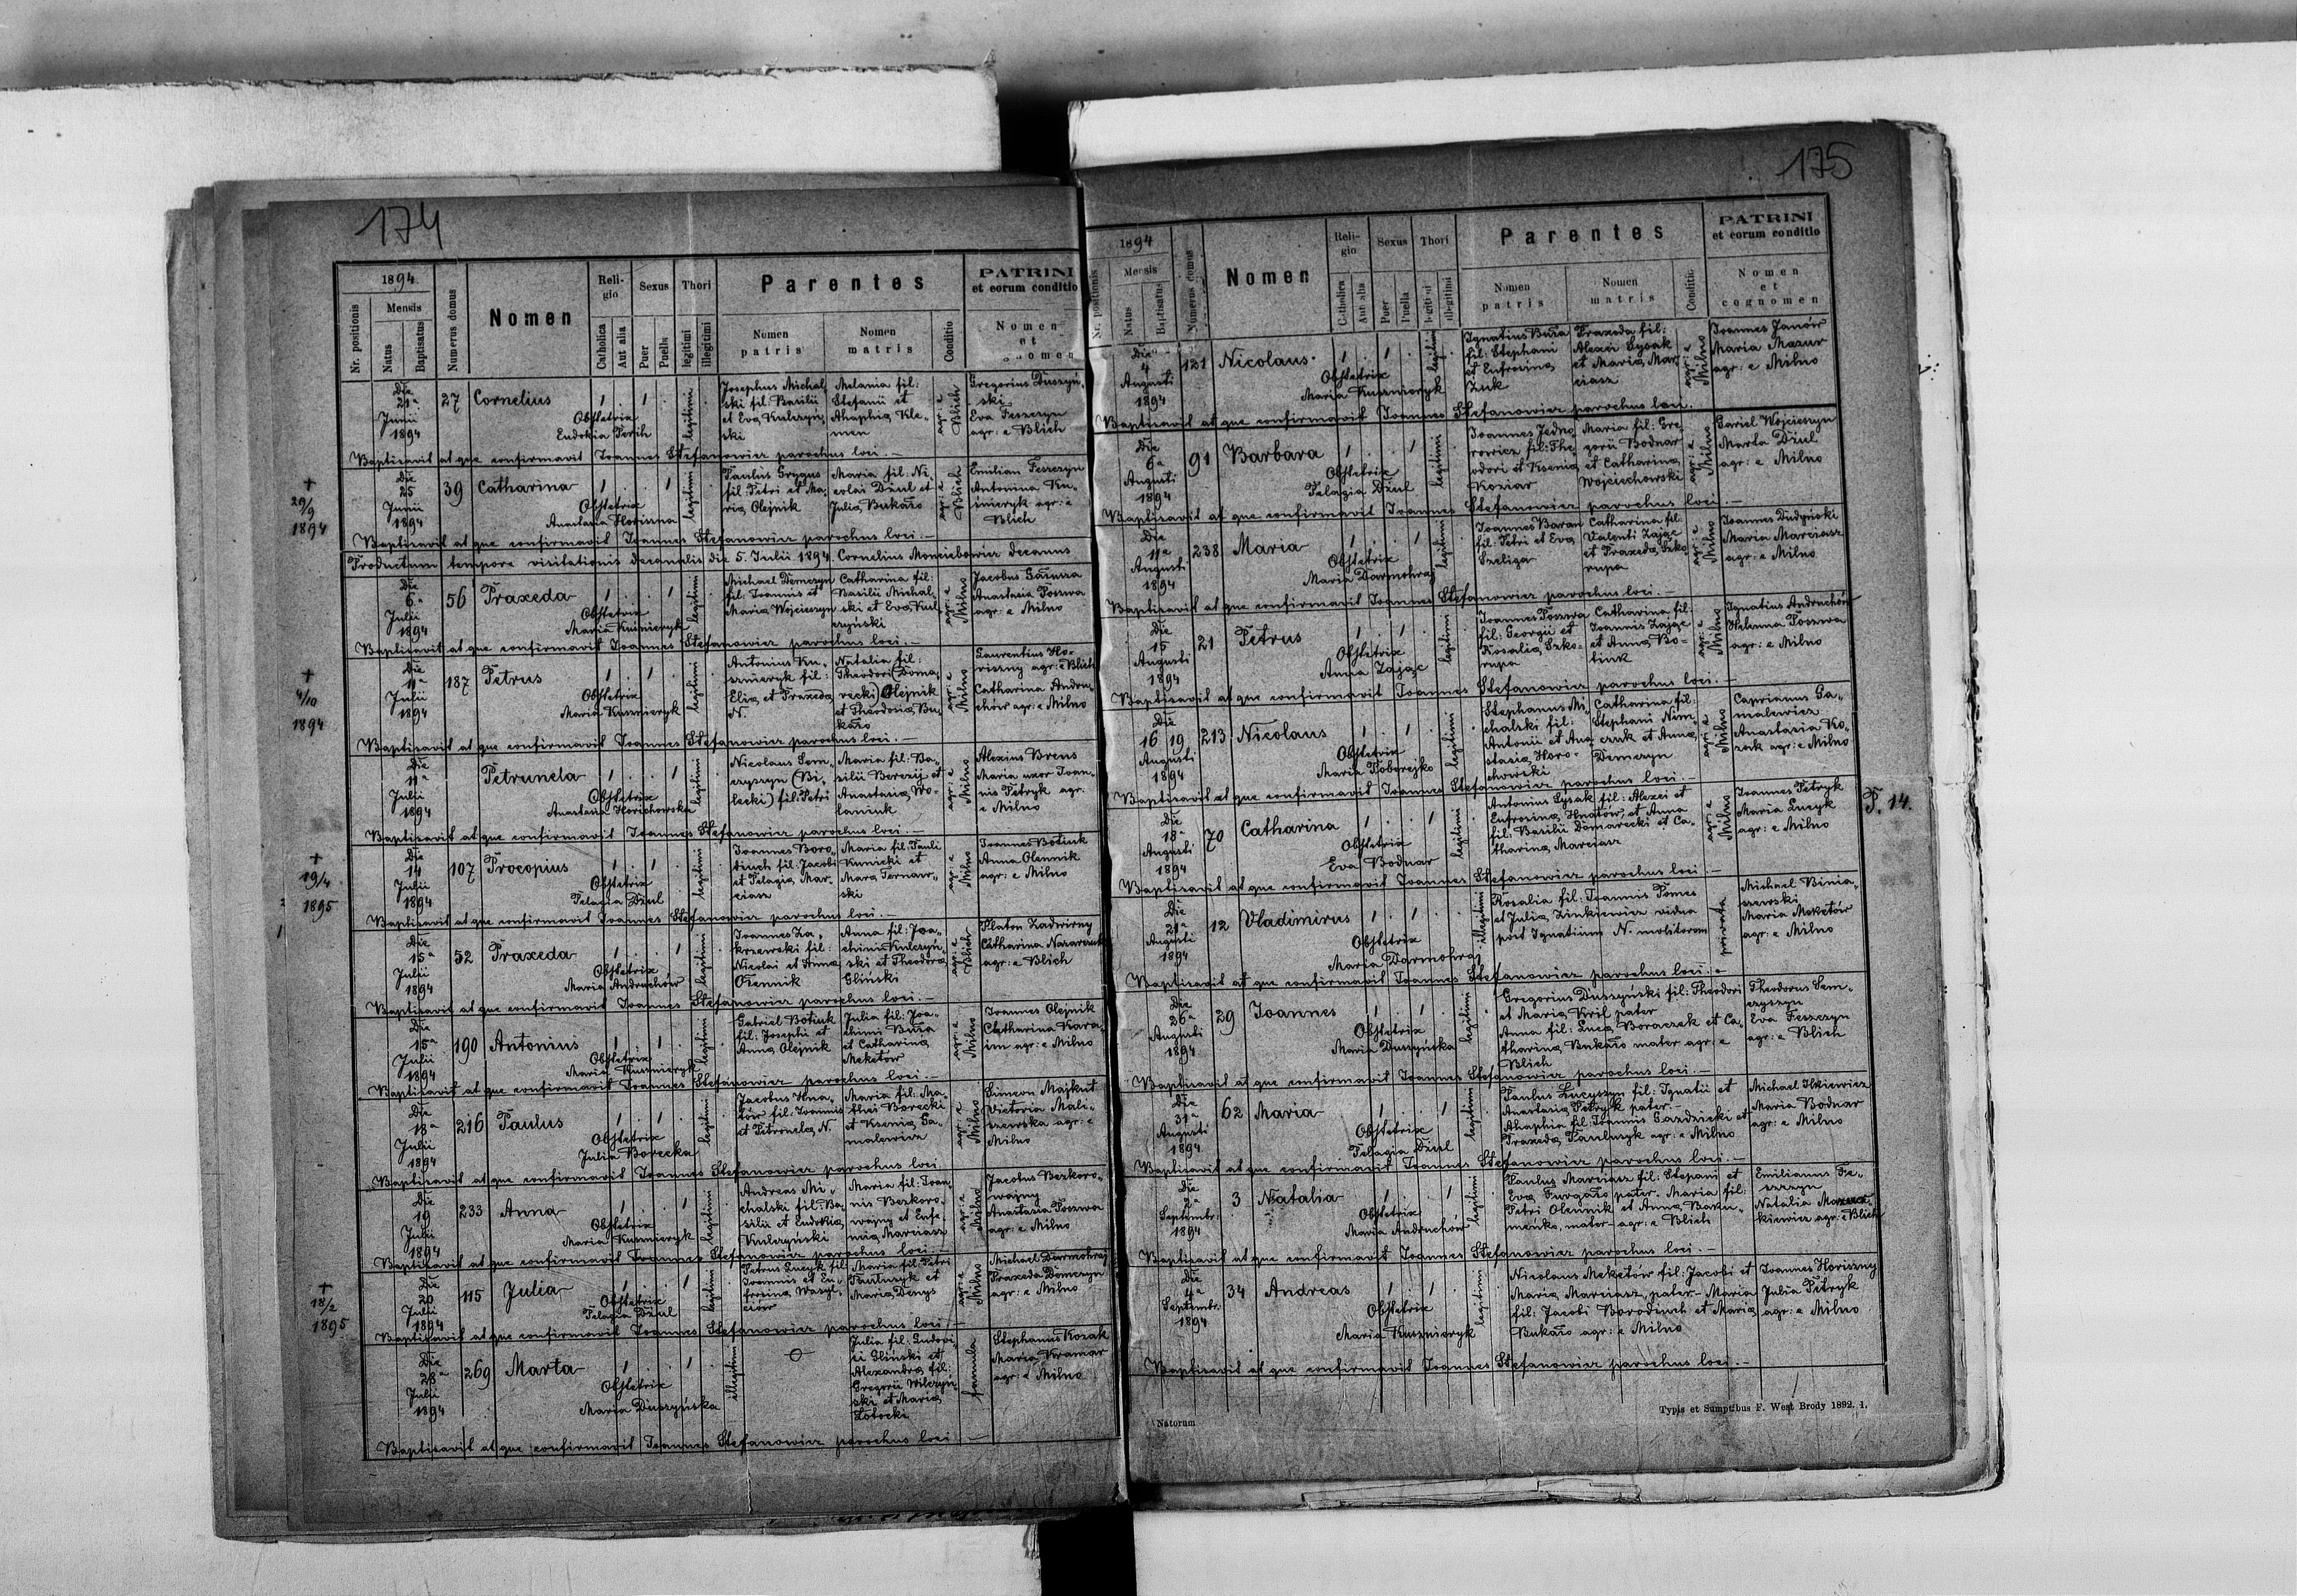 174
1894
Nr. positionis
Mensis
Natus
Baptisatus
Numerus domus
Nomen
Religio
Catholica
Aut alia
Sexus
Puer
Puella
Thori
legitimi
illegitimi
Parentes
Nomen patris
Nomen matris
Conditio
PATRINI
et eorum conditio
Nomen
et
cognomen
Die 21ª Junii 1894
27
Cornelius
Obstetrix
Eudokia Perih
legitimi
Josephus Michal
ski fil: Basilii
et Eva Kulczyń
ski
Melania fil:
Stefanii et
Ahaphia Kle„
men
agr: e Blich
Gregorius Duszyń„
ski
Eva Feszczyn
agr: e Blich
Baptisavit atque confirmavit Joannes Stefanowicz parochus loci. —
+ 29/9 1894
Die 25 Junii 1894
39
Catharina
Obstetrix
Anastasia Horiszna
legitimi
Paulus Grygus
fil: Petri et Ma„
ria Olejnik
Maria fil: Ni„
colai Dżul et
Julia Bukało
agr: e Blich
Emilian Feszczyn
Antonina Ku„
śnieryk agr: e
Blich
Baptisavit atque confirmavit Joannes Stefanowicz parochus loci. —
Productum tempore visitationis decanalis die 5. Julii 1894. Cornelius decanus
Die 6ª Julii 1894
56
Praxeda
Obstetrix
Maria Kusznieryk
legitimi
Michael Demczyn
fil: Joannis et
Maria Wojcieszyn
Catharina fil:
Basilii Michal„
ski et Eva Kul„
czyński
agr: e Milno
Jacobus
Anastasia Poszwa
agr: e Milno
Baptisavit atque confirmavit Joannes Stefanowicz parochus loci. —
+ 4/10 1894
Die 11ª Julii 1894
187
Petrus
Obstetrix
Maria Kusznieryk
legitimi
Antonius Ku„
sznieryk fil:
Elia et Praxeda
N.
Natalia fil:
Theodori Doma„
recki Olejnik
et Theodosia Bu„
kało
agr: e Milno
Laurentius Ho„
riszny agr: e Blich
Catharina Andru„
chów agr: e Milno
Baptisavit atque confirmavit Joannes Stefanowicz parochus loci. —
Die 11ª Julii 1894
Petrunela
Obstetrix
Anastasia Horichowska
legitimi
Nicolaus Sem„
czyszyn (Bi„
lecki) fil: Petri
Maria fil: Ba„
silii Berezij et
Anastasia Wo„
laniuk
agr: e Milno
Alexius Brens
Maria uxor Joan„
nis Petryk agr.
e Milno
Baptisavit atque confirmavit Joannes Stefanowicz parochus loci. —
+ 19/4 1895
Die 14 Julii 1894
107
Procopius
Obstetrix
Pelagia Dżul
legitimi
Joannes Boro„
diuch fil: Jacobi
et Pelagia Mar„
ciasz
Maria fil: Pauli
Kunicki et
Mara Ternaw„
ski
agr: e Milno
Joannes Botiuk
Anna Olennik
agr: e Milno
Baptisavit atque confirmavit Joannes Stefanowicz parochus loci. —
Die 15ª Julii 1894
52
Praxeda
Obstetrix
Maria Andruchów
legitimi
Joannes Za„
krzewski fil:
Nicolai et Anna
Olennik
Anna fil: Joa„
chimi Kulczyń„
ski et Theodora
Gliński
agr: e Blich
Platon Zadwirny
Catharina Nazarczuk
agr: e Blich
Baptisavit atque confirmavit Joannes Stefanowicz parochus loci. —
Die 15ª Julii 1894
190
Antonius
Obstetrix
Maria Kusznieryk
legitimi
Gabriel Botiuk
fil: Josephi et
Anna Olejnik
Julia fil: Joa„
chimi Buła
et Catharina
Meketów
agr: e Milno
Joannes Olejnik
Catharina Kara„
im agr: e Milno
Baptisavit atque confirmavit Joannes Stefanowicz parochus loci. —
Die 18ª Julii 1894
216
Paulus
Obstetrix
Julia Borecka
legitimi
Jacobus Hna„
tów fil: Joannis
et Petronela N.
Maria fil: Ma„
thei Borecki
et Ksenia Ga„
malewicz
agr: e Milno
Simeon Majkut
Victoria Mali„
szewska agr: e
Milno
Baptisavit atque confirmavit Joannes Stefanowicz parochus loci
Die 19 Julii 1894
233
Anna
Obstetrix
Maria Kusznieryk
legitimi
Andreas Mi„
chalski fil: Ba„
silii et Eudokia
Kulczyński
Maria fil: Joan„
nis Bezkoro„
wajny et Eufe„
mia Marciasz
agr: e Milno
Jacobus Bezkoro„
wajny
Anastasia Poszwa
agr: e Milno
Baptisavit atque confirmavit Joannes Stefanowicz parochus loci. —
+ 18/2 1895
Die 20 Julii 1894
115
Julia
Obstetrix
Pelagia Dżul
legitimi
Petrus Lucyk fil:
Joannis et Eu„
frosina Wasyl„
ciów
Maria fil: Petri
Pauluszyk et
Maria Denys
agr: e Milno
Michael Darmohraj
Praxeda Demczyn
agr: e Milno
Baptisavit atque confirmavit Joannes Stefanowicz parochus loci. —
Die 28ª Julii 1894
269
Marta
Obstetrix
Maria Duszyńska
illegitimi
Julia fil: Ludovi
ci Gliński et
Alexandra fil:
Gregorii Wilczyń
ski et Maria
Łotocki
famula
Stephanus Kozak
Maria Kramar
agr: e Milno
Baptisavit atque confirmavit Joannes Stefanowicz parochus loci —
175
1894
Nr. positionis
Mensis
Natus
Baptisatus
Numerus domus
Nomen
Religio
Catholica
Aut alia
Sexus
Puer
Puella
Thori
legitimi
illegitimi
Parentes
Nomen patris
Nomen matris
Conditio
PATRINI
et eorum conditio
Nomen
et
cognomen
Die 4 Augusti 1894
121
Nicolaus.
Obstetrix
Maria Kusznieryk
legitimi
Ignatius Buła
fil: Stephani
et Eufrosina
Żuk
Praxeda fil:
Alexei Łysak
et Maria Mar„
ciasz
agr: e Milno
Joannes Janów
Maria Mazur
agr: e Milno
Baptisavit atque confirmavit Joannes Stefanowicz parochus loci.
Die 6ª Augusti 1894
91
Barbara
Obstetrix
Pelagia Dżul
legitimi
Joannes Jedno„
rowicz fil: The„
odori et Ksenia
Koziar
Maria fil: Gre„
gorii Bodnar
et Catharina
Wojciechowski
agr: e Milno
Gariel Wojcieszyn
Marta Dżul
agr: e Milno
Baptisavit atque confirmavit Joannes Stefanowicz parochus loci. —
Die 11ª Augusti 1894
238
Maria
Obstetrix
Maria Darmohraj
legitimi
Joannes Baran
fil: Petri et Eva
Szeliga
Catharina fil:
Valenti Zając
et Praxeda Szko
rupa
agr: e Milno
Joannes Dudyński
Maria Marciasz
agr: e Milno
Baptisavit atque confirmavit Joannes Stefanowicz parochus loci. —
Die 15 Augusti 1894
21
Petrus
Obstetrix
Anna Zając
legitimi
Joannes Poszwa
fil: Georgii et
Rosalia Szko„
rupa
Catharina fil:
Joannis Zając
et Anna Bo„
tiuk
agr: e Milno
Ignatius Andruchów
Helenna Poszwa
agr: e Milno
Baptisavit atque confirmavit Joannes Stefanowicz parochus loci. —
Die 16 19 Augusti 1894
213
Nicolaus
Obstetrix
Maria Poberejko
legitimi
Stephanus Mi„
chalski fil:
Antonii et Ana„
stasia Horo„
chowski
Catharina fil:
Stephani Niem„
czuk et Anna
Demczyn
agr: e Milno
Caprianus Ga„
malewicz
Anastasia Ko„
zak agr: e Milno
Baptisavit atque confirmavit Joannes Stefanowicz parochus loci. —
Die 18ª Augusti 1894
70
Catharina
Obstetrix
Eva Bodnar
legitimi
Antonius Łysak fil: Alexei et
Eufrosina Hnatów, et Anna
fil: Basilii Domarecki et Ca„
tharina Marciasz
agr: e Milno
Joannes Petryk
Maria Lucyk
agr: e Milno
T. 14.
Baptisavit atque confirmavit Joannes Stefanowicz parochus loci. —
Die 21ª Augusti 1894
12
Vladimirus
Obstetrix
Maria Darmohraj
illegitimi
Rosalia fil: Joannis Pomes
et Julia Zinkiewicz vidua
post Ignatium N. molitorem
privata
Michael Binia„
szewski
Maria Meketów
agr: e Milno
Baptisavit atque confirmavit Joannes Stefanowicz parochus loci. —
Die 26ª Augusti 1894
29
Joannes
Obstetrix
Maria Duszyńska
legitimi
Gregorius Duszyński fil: Theodori
et Maria Kril pater
Anna fil: Luca Boraczek et Ca„
tharina Bukało mater agr: e
Blich
Theodorus Sem„
czyszyn
Eva Feszczyn
agr: e Blich
Baptisavit atque confirmavit Joannes Stefanowicz parochus loci. —
Die 31ª Augusti 1894
62
Maria
Obstetrix
Pelagia Dżul
legitimi
Paulus Łucyszyn fil: Ignatii et
Anastasia Petryk pater. —
Ahaphia fil: Joannis Gardzicki et
Praxeda Pauluszyk agr: e Milno
Michael Ilkiewicz
Maria Bodnar
agr: e Milno
Baptisavit atque confirmavit Joannes Stefanowicz parochus loci. —
Die 2ª Septembr: 1894
3
Natalia
Obstetrix
Maria Andruchów
legitimi
Paulus Marciasz fil: Stepani et
Eva Furgało pater. Maria fil:
Petri Olennik et Anna Baku„
meńko, mater agr: e Blich
Emilianus Fe„
szczyn
Natalia
kiewicz agr: e Blich
Baptisavit atque confirmavit Joannes Stefanowicz parochus loci. —
Die 4ª Septembr: 1894
34
Andreas
Obstetrix
Maria Kusznieryk
legitimi
Nicolaus Meketów fil: Jacobi et
Maria Marciasz, pater - Maria
fil: Jacobi Borodiuch et Maria
Bukało agr: e Milno
Joannes Horiszny
Julia Petryk
agr: e Milno
Baptisavit atque confirmavit Joannes Stefanowicz parochus loci. —
Natorum
Typis et Sumptibus F. West Brody 1892. 1.